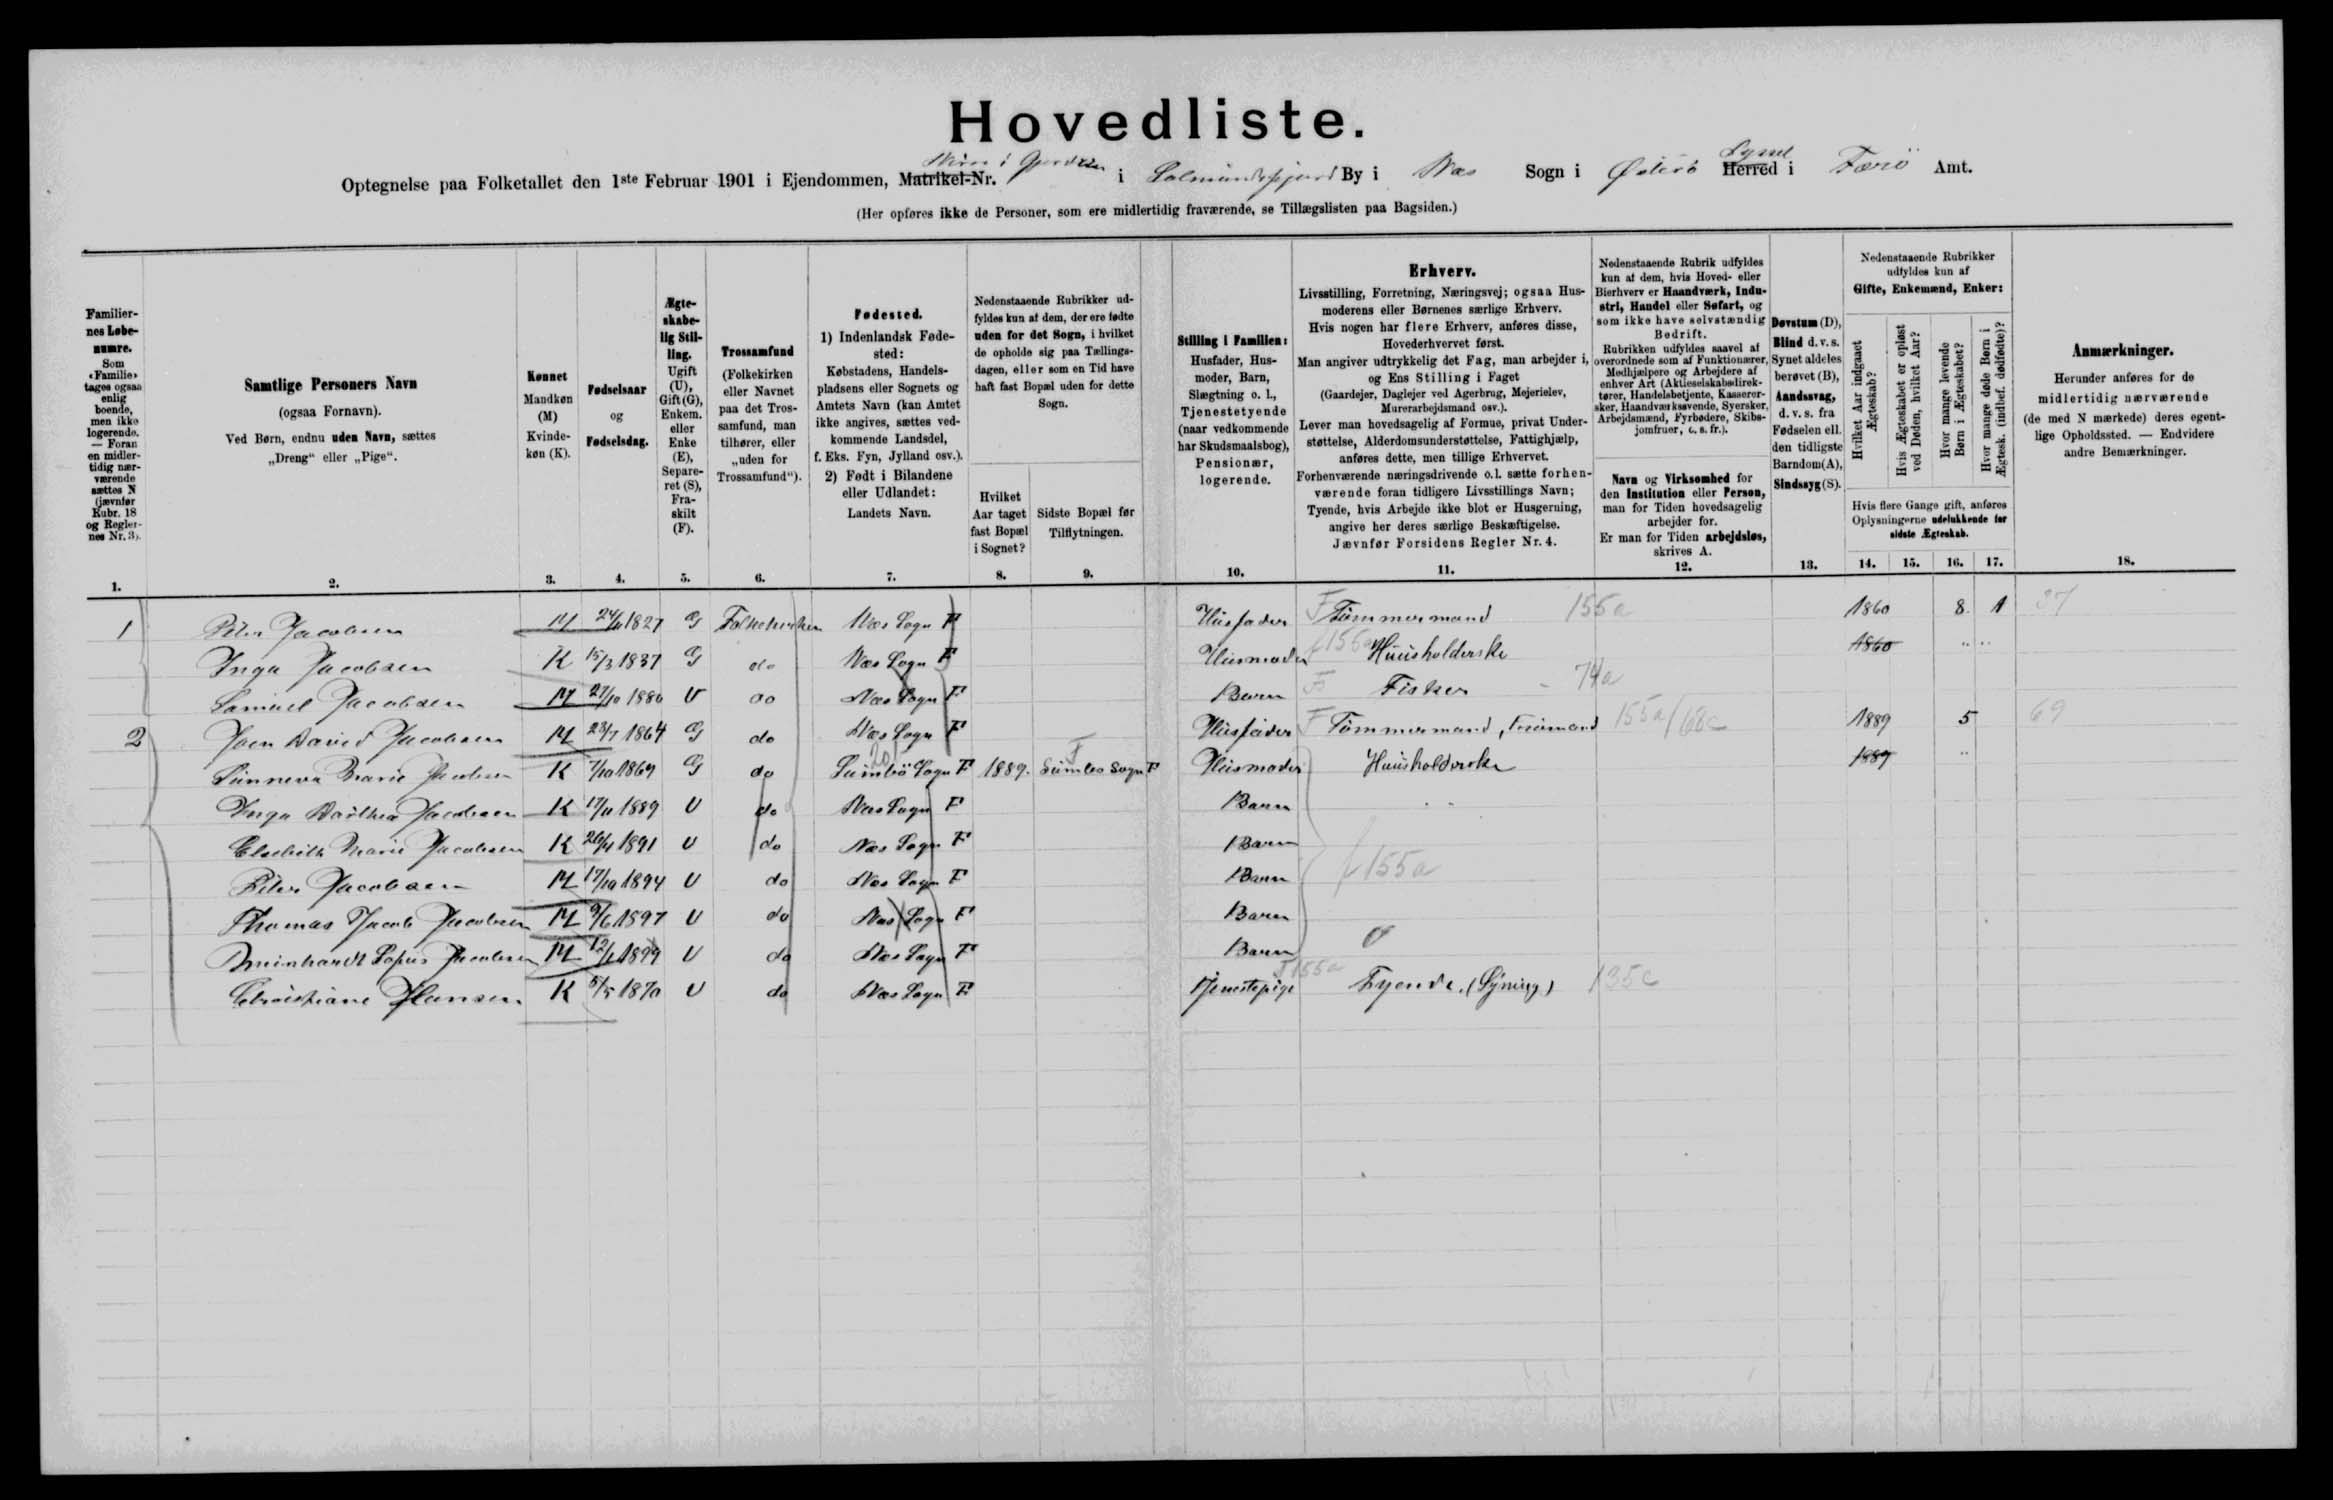 Hovedliste.
Optegnelse paa Folketallet den 1ste Februar 1901 i Ejendommen, Matrikel-Nr. i By i Næs Sogn i Østerö Herred Syssel i Færö Amt.
(Her opføres ikke de Personer, som ere midlertidig fraværende, se Tillægslisten paa Bagsiden.)
Familier-
nes Løbe-
numre.
Som
«Familie»
tages ogsaa
enlig
boende,
men ikke
logerende.
— Foran
en midler-
tidig nær-
værende
sættes N
(jævnfør
Rubr. 18
og Regler-
nes Nr. 3).
1.
Samtlige Personers Navn
(ogsaa Fornavn).
Ved Børn, endnu uden Navn, sættes
„Dreng“ eller „Pige“.
2.
Kønnet
Mandkøn
(M)
Kvinde-
køn (K).
3.
Fødselsaar
og
Fødselsdag.
4.
Ægte-
skabe-
lig Stil-
ling.
Ugift
(U),
Gift (G),
Enkem.
eller
Enke
(E),
Separe-
ret (S),
Fra-
skilt
(F).
5.
Trossamfund
(Folkekirken
eller Navnet
paa det Tros-
samfund, man
tilhører, eller
„uden for
Trossamfund“).
6.
Fødested.
1) Indenlandsk Føde-
sted:
Købstadens, Handels-
pladsens eller Sognets og
Amtets Navn (kan Amtet
ikke angives, sættes ved-
kommende Landsdel,
f. Eks. Fyn, Jylland osv.).
2) Født i Bilandene
eller Udlandet:
Landets Navn.
7.
Nedenstaaende Rubrikker ud-
fyldes kun af dem, der ere fødte
uden for det Sogn, i hvilket
de opholde sig paa Tællings-
dagen, eller som en Tid have
haft fast Bopæl uden for dette
Sogn.
Hvilket
Aar taget
fast Bopæl
i Sognet?
8.
Sidste Bopæl før
Tilflytningen.
9.
Stilling i Familien:
Husfader, Hus-
moder, Barn,
Slægtning o. l.,
Tjenestetyende
(naar vedkommende
har Skudsmaalsbog),
Pensionær,
logerende.
10.
Erhverv.
Livsstilling, Forretning, Næringsvej; ogsaa Hus-
moderens eller Børnenes særlige Erhverv.
Hvis nogen har flere Erhverv, anføres disse,
Hovederhvervet først.
Man angiver udtrykkelig det Fag, man arbejder i,
og Ens Stilling i Faget
(Gaardejer, Daglejer ved Agerbrug, Mejerielev,
Murerarbejdsmand osv.).
Lever man hovedsagelig af Formue, privat Under-
støttelse, Alderdomsunderstøttelse, Fattighjælp,
anføres dette, men tillige Erhvervet.
Forhenværende næringsdrivende o.l. sætte forhen-
værende foran tidligere Livsstillings Navn;
Tyende, hvis Arbejde ikke blot er Husgerning,
angive her deres særlige Beskæftigelse.
Jævnfør Forsidens Regler Nr. 4.
11.
Nedenstaaende Rubrik udfyldes
kun af dem, hvis Hoved- eller
Bierhverv er Haandværk, Indu-
stri, Handel eller Søfart, og
som ikke have selvstændig
Bedrift.
Rubrikken udfyldes saavel af
overordnede som af Funktionærer,
Medhjælpere og Arbejdere af
enhver Art (Aktieselskabsdirek-
tører, Handelsbetjente, Kasserer-
sker, Haandværkssvende, Syersker,
Arbejdsmænd, Fyrbødere, Skibs-
jomfruer, o. s. fr.).
Navn og Virksomhed for
den Institution eller Person,
man for Tiden hovedsagelig
arbejder for.
Er man for Tiden arbejdsløs,
skrives A.
12.
Døvstum (D),
Blind d. v. s.
Synet aldeles
berøvet (B),
Aandssvag,
d. v. s. fra
Fødselen ell.
den tidligste
Barndom (A),
Sindssyg (S).
13.
Nedenstaaende Rubrikker
udfyldes kun af
Gifte, Enkemænd, Enker:
Hvilket Aar indgaaet
Ægteskab?
Hvis Ægteskabet er opløst
ved Døden, hvilket Aar?
Hvor mange levende
Børn i Ægteskabet?
Hvor mange døde Børn i
Ægtesk. (indbef. dødfødte)?
Hvis flere Gange gift, anføres
Oplysningerne udelukkende for
sidste Ægteskab.
14. 15. 16. 17.
Anmærkninger.
Herunder anføres for de
midlertidig nærværende
(de med N mærkede) deres egent-
lige Opholdssted. — Endvidere
andre Bemærkninger.
18.
1 Peter Jacobsen M 1827 G Folkekirken Næs Sogn F Husfader F Tömmermand 155a 1860 8 1 37
Inga Jacobsen K 15/3 1837 G do Næs Sogn F Husmoder Huusholderske 1860
Samuel Jacobsen M 27/10 1880 U do Næs Sogn F Barn F Fisker 74a
2 Joen David Jacobsen M 23/7 1864 G do Næs Sogn F Husfader F Tömmermand, 155a/68c 1889 5 69
Sunneva Marie Jacobsen K 7/10 1869 G do Sumbö Sogn F 1889. Sumbo Sogn F Husmoder Huusholderske 1889
Inga Dorthea Jacobsen K 1889 U do Næs Sogn F Barn
Elsebeth Marie Jacobsen K 1891 U do Næs Sogn F Barn
Peter Jacobsen M 17/10 1894 U do Næs Sogn F Barn f 155a
Thomas Jacob Jacobsen M 9/6 1897 U do Næs Sogn F Barn
Jacobsen M 1899 U do Næs Sogn F Barn
Christiane Hansen K 5/5 1870 U do Næs Sogn F Tjenestepige F155a Tyende. (Syning) 135c